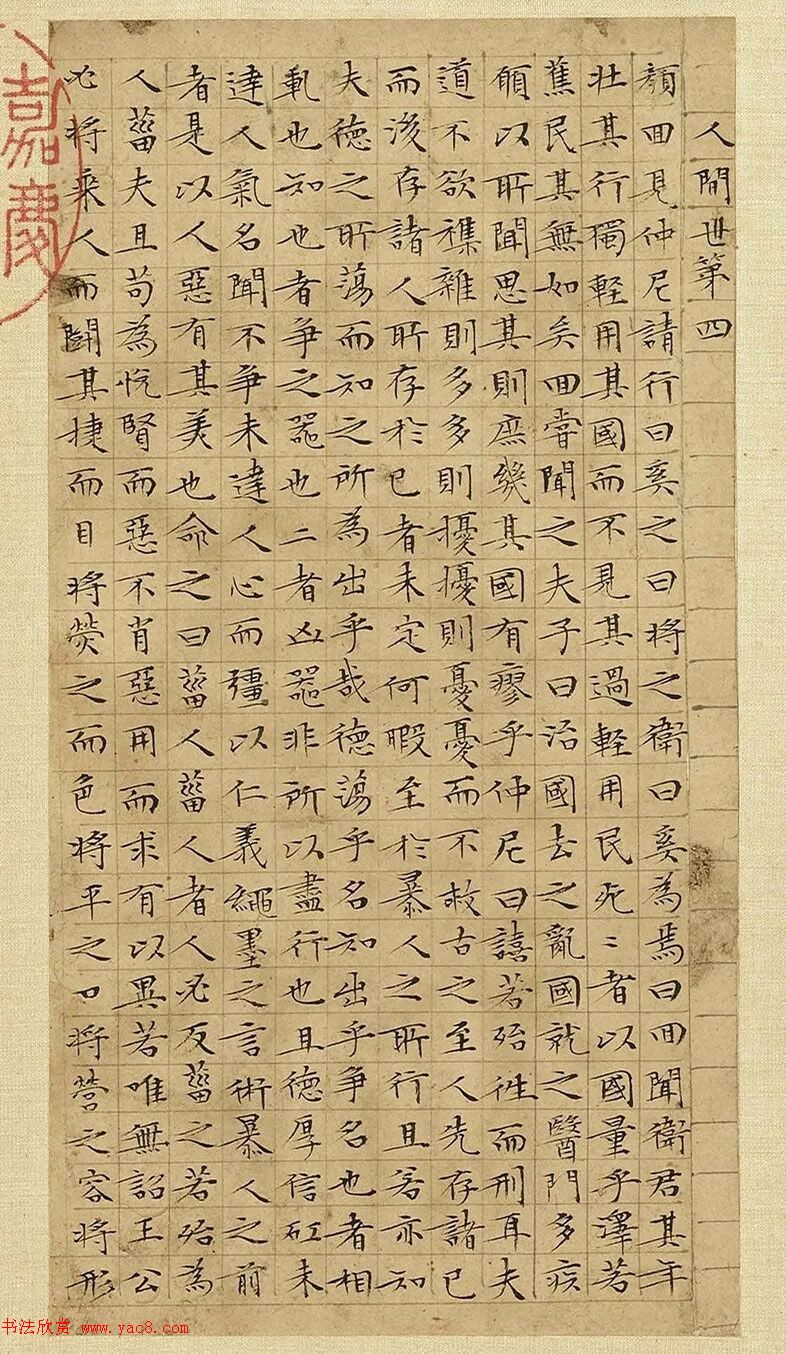 人閒世第四
顏回見仲尼請行曰奚之曰將之衛曰奚為焉曰回聞衛君其年
壯其行獨輕用其國而不見其過輕用民死〻者以國量乎澤若
蕉民其無如矣回嘗聞之夫子曰治國去之亂國就之醫門多疾
願以所聞思其則庶幾其國有瘳乎仲尼曰譆若殆往而刑耳夫
道不欲襍雜則多多則擾擾則憂憂而不救古之至人先存諸己
而後存諸人所存於己者未定何暇至於暴人之所行且若亦知
夫德之所蕩而知之所為出乎哉德蕩乎名知出乎爭名也者相
軋也知也者爭之器也二者凶器非所以盡行也且德厚信矼未
達人氣名聞不爭未達人心而彊以仁義繩墨之言術暴人之前
者是以人惡有其美也命之曰菑人菑人者人必反菑之若殆為
人菑夫且苟為悅賢而惡不肖惡用而求有以異若唯無詔王公
必將乘人而鬬其捷而目將熒之而色將平之口將營之容將形
嘉慶
书法欣赏 www.yac8.com